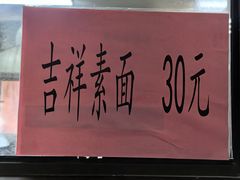 吉祥素面 30元